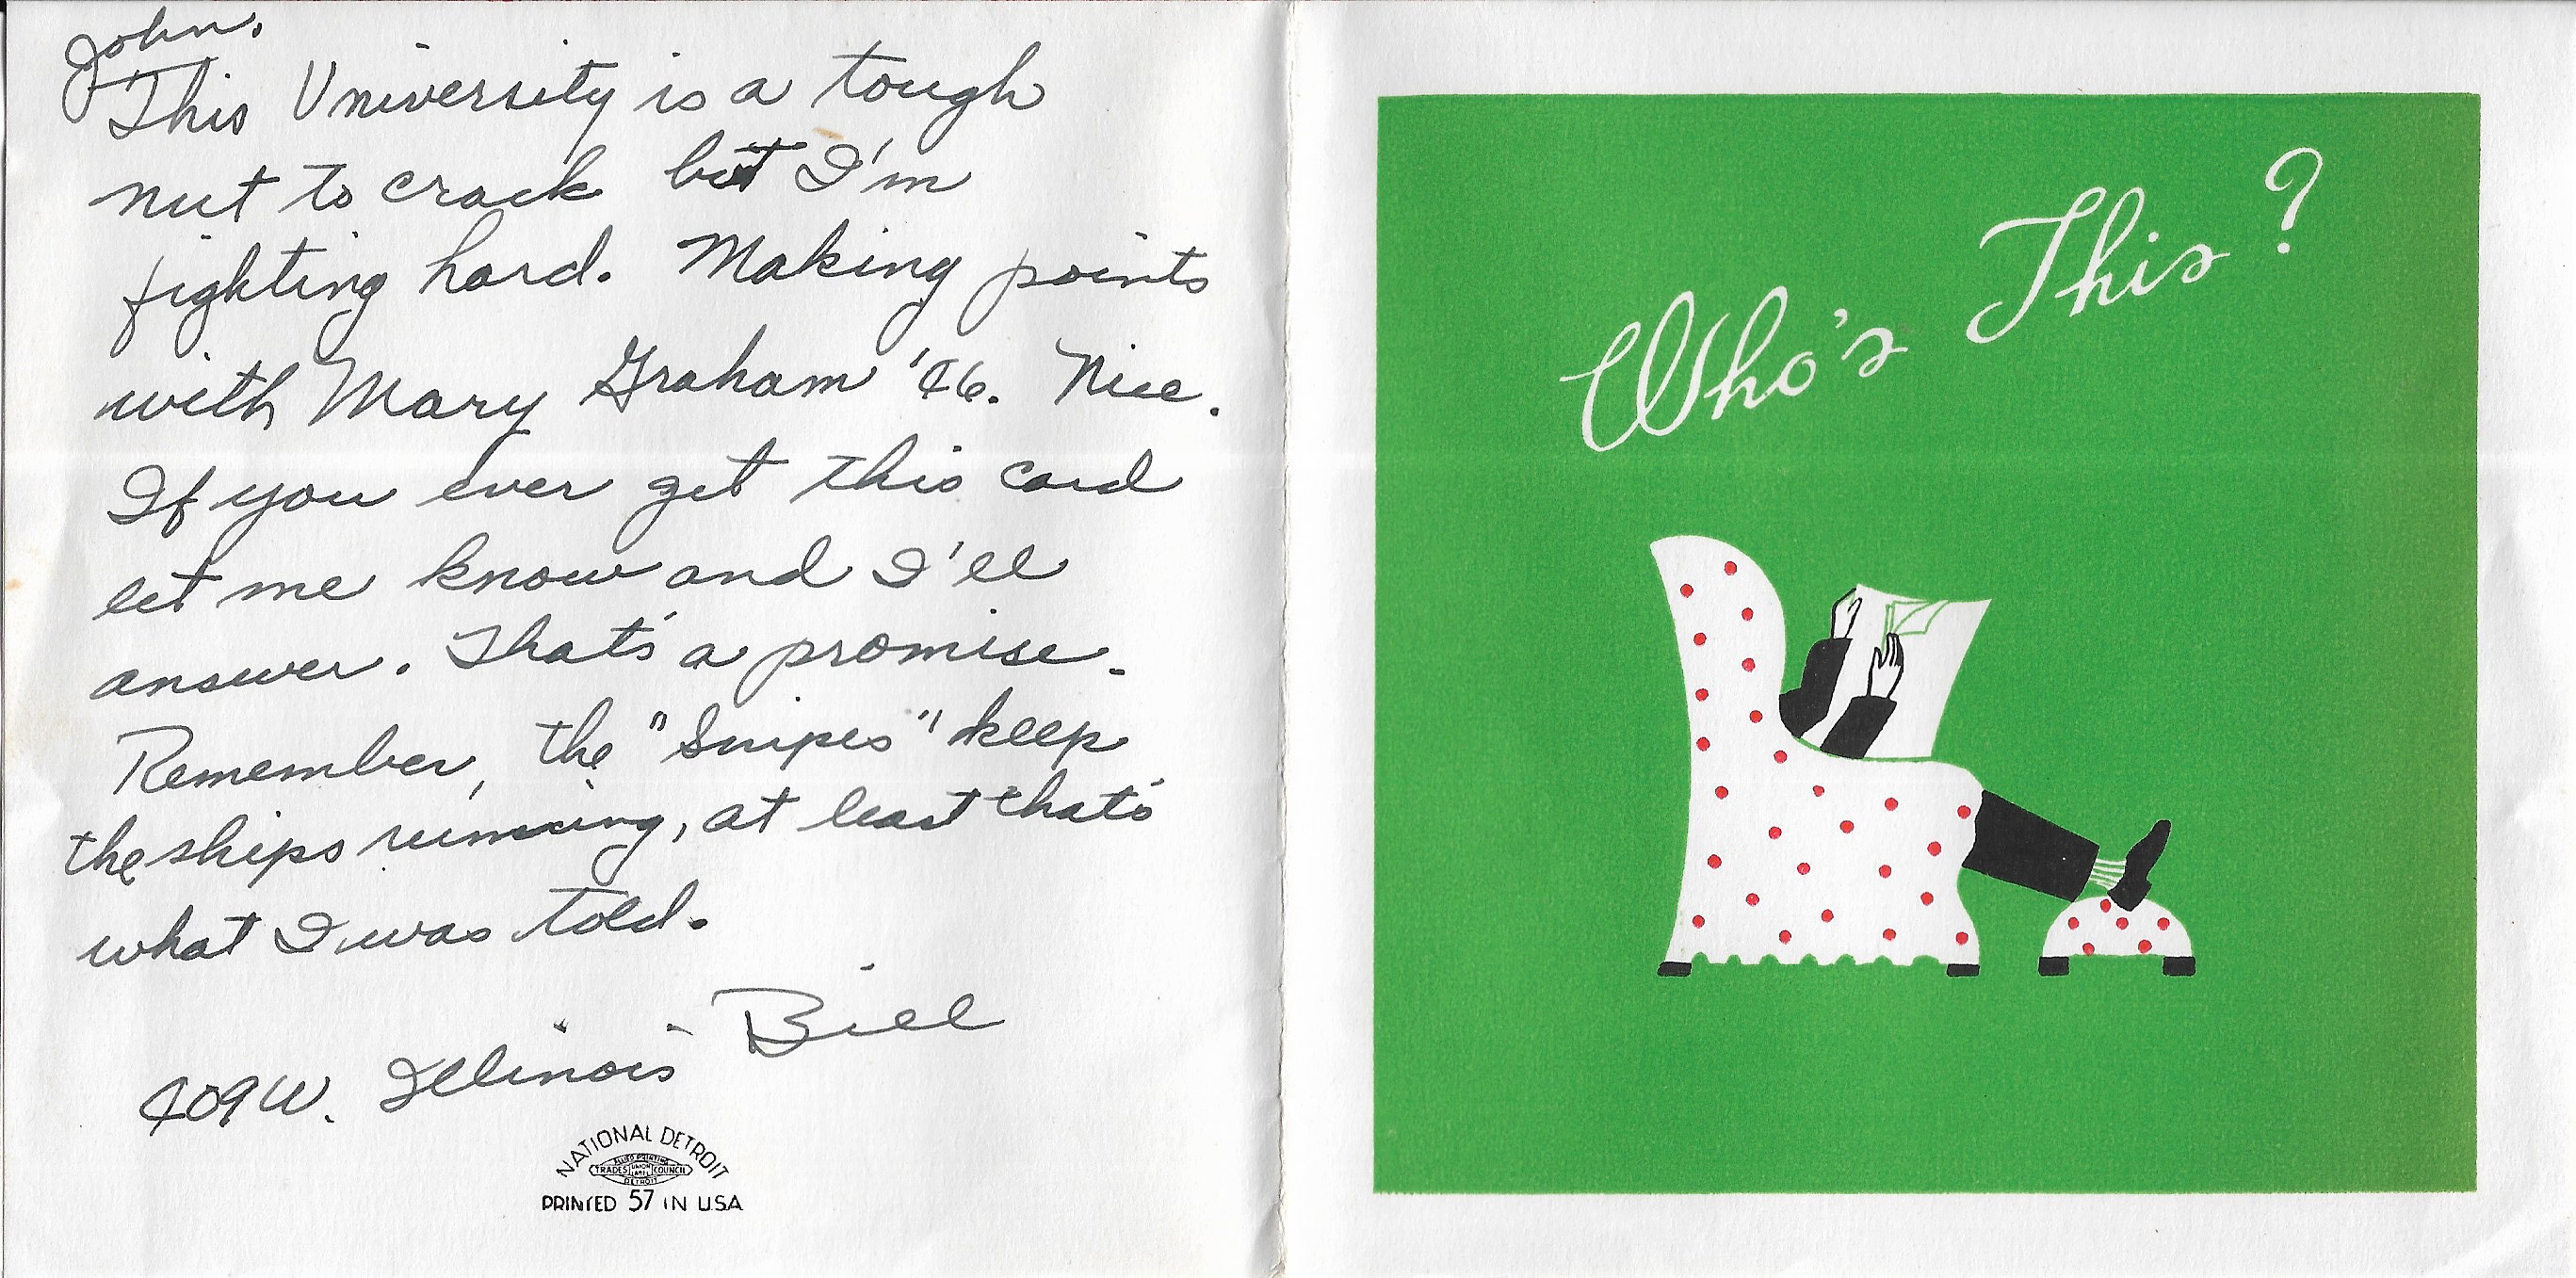 John.
This University is a tough
nut to crack but I'm
fighting hard. Making points
with Mary Graham '46. Nice.
If you ever get this card
let me know and I'll
answer. That's a promise.
Remember, the "Snipes" keep
the ships running, at least that's
what I was told.
Bill
409 W. Illinois
NATIONAL DETROIT
ALLIED PRINTING
TRADES UNION LABEL COUNCIL
DETROIT
PRINTED 57 IN U.S.A
Who's This?